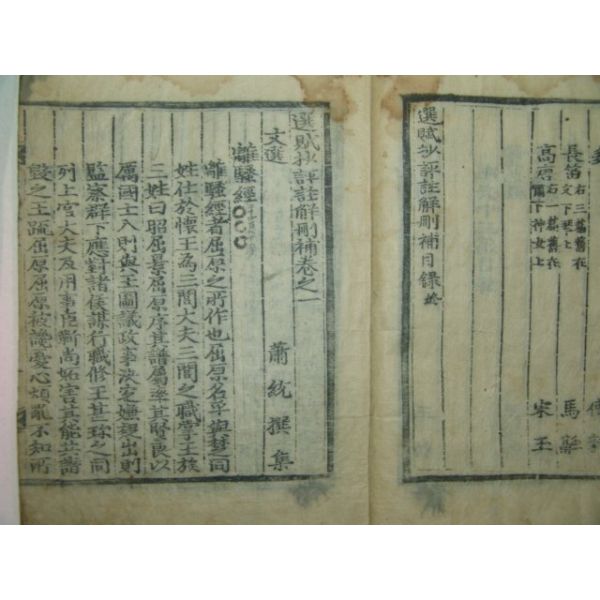 長笛 右三篇舊在文下琴上 馬融
高唐 右一篇舊在 下神女上 宋玉
選賦抄評註解刪補目錄終
選賦抄評註解刪補卷之一
文選 蕭統撰集
離騷經
離騷經者屈原之所作也屈原名平與楚之同
姓仕於懷王為三閭大夫三閭之職掌王族
三姓曰昭屈景屈原序其譜屬率其賢良以
厲國士入則與王圖議政事決定嫌疑出則
監察群下應對諸侯謀行職修王甚珍之同
列上官大夫及用事臣靳尚妬害其能共譖
毀之王疏屈原屈原被讒憂心煩亂不知所